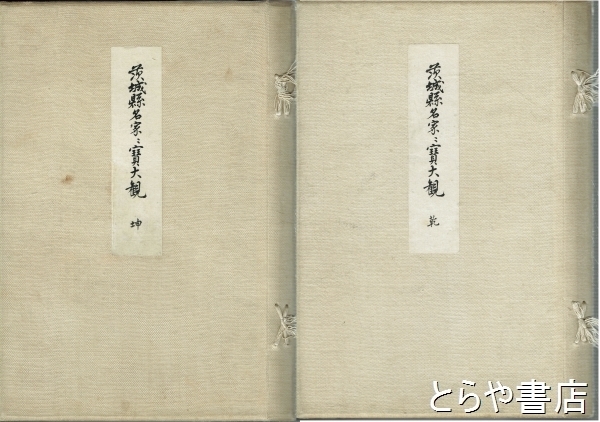 茨城縣名家〻寶大観 乾
茨城縣名家〻寶大観 坤
とらや書店